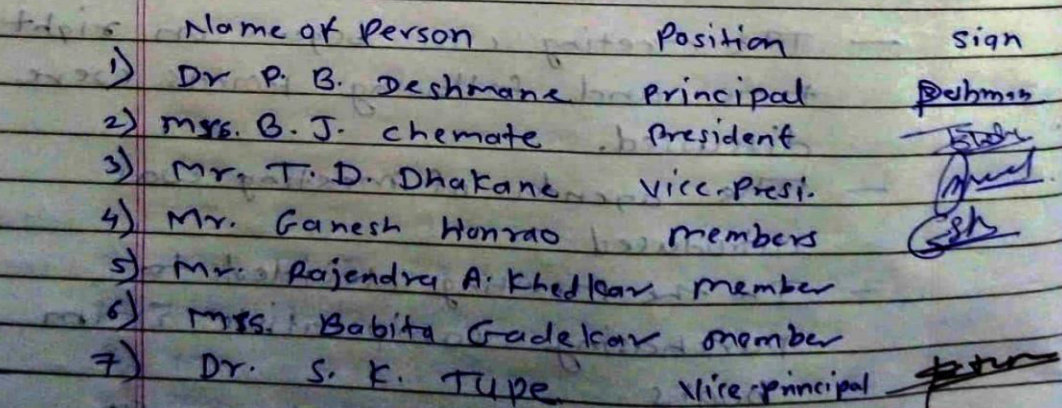 Name of Person Position Sign
1) Dr P. B. Deshmane Principal
2) Mrs. B. J. Chemate President
3) Mr. T. D. Dhakane Vice-Presi.
4) Mr. Ganesh Honrao members
5) Mr. Rajendra A. Khedkar member
6) Mrs. Babita Gadekar member
7) Dr. S. K. Tupe Vice-principal